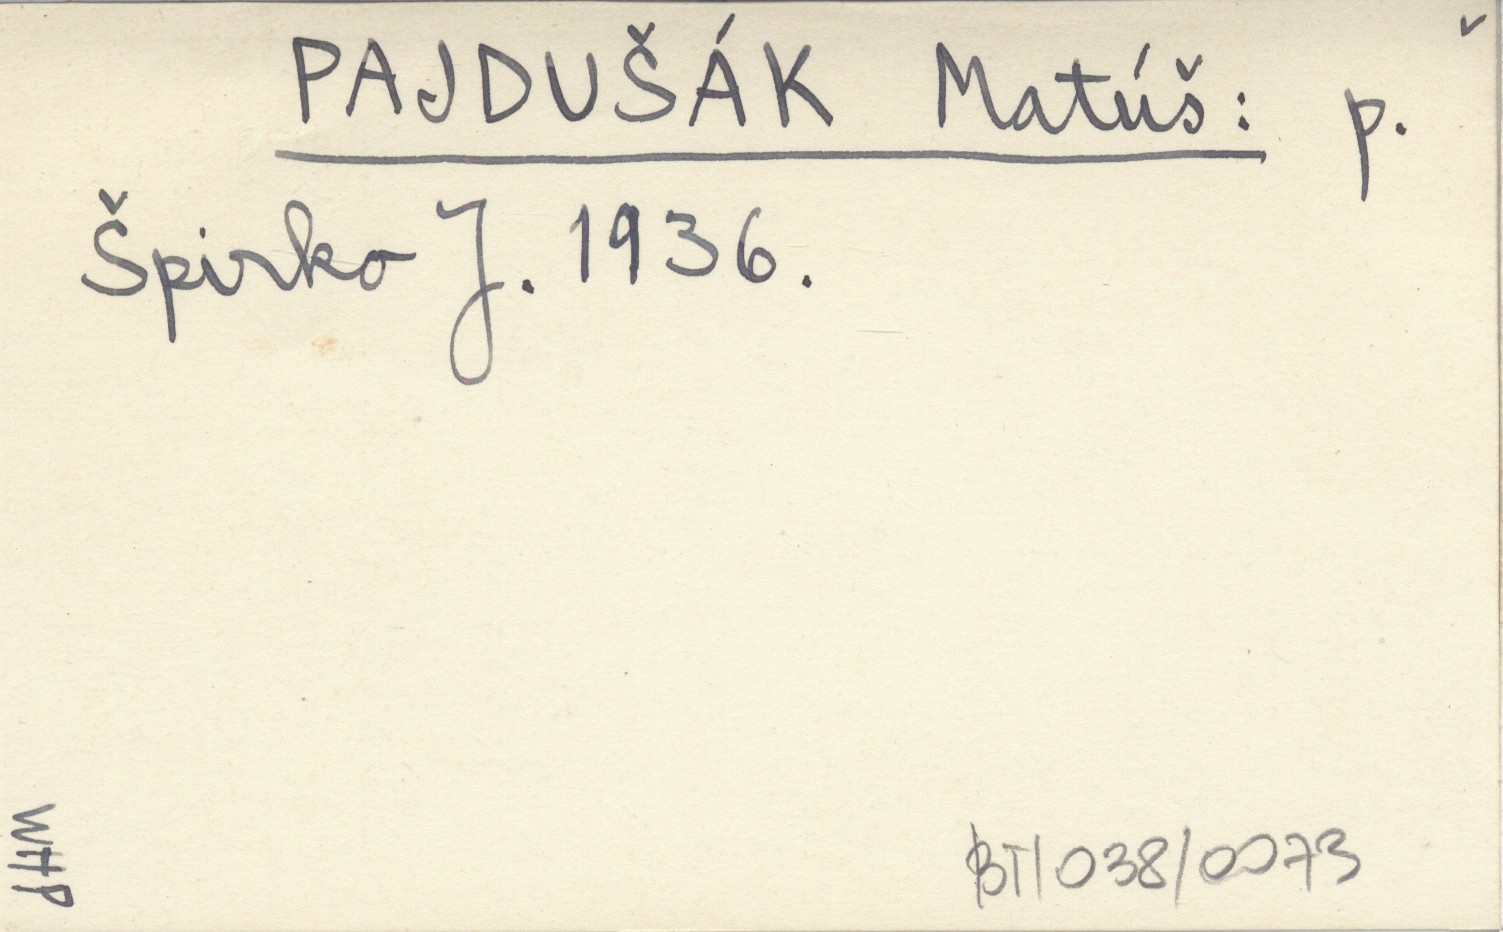 PAJDUŠÁK Matúš: p.
Špirko J. 1936.
WHP
BT/038/0073